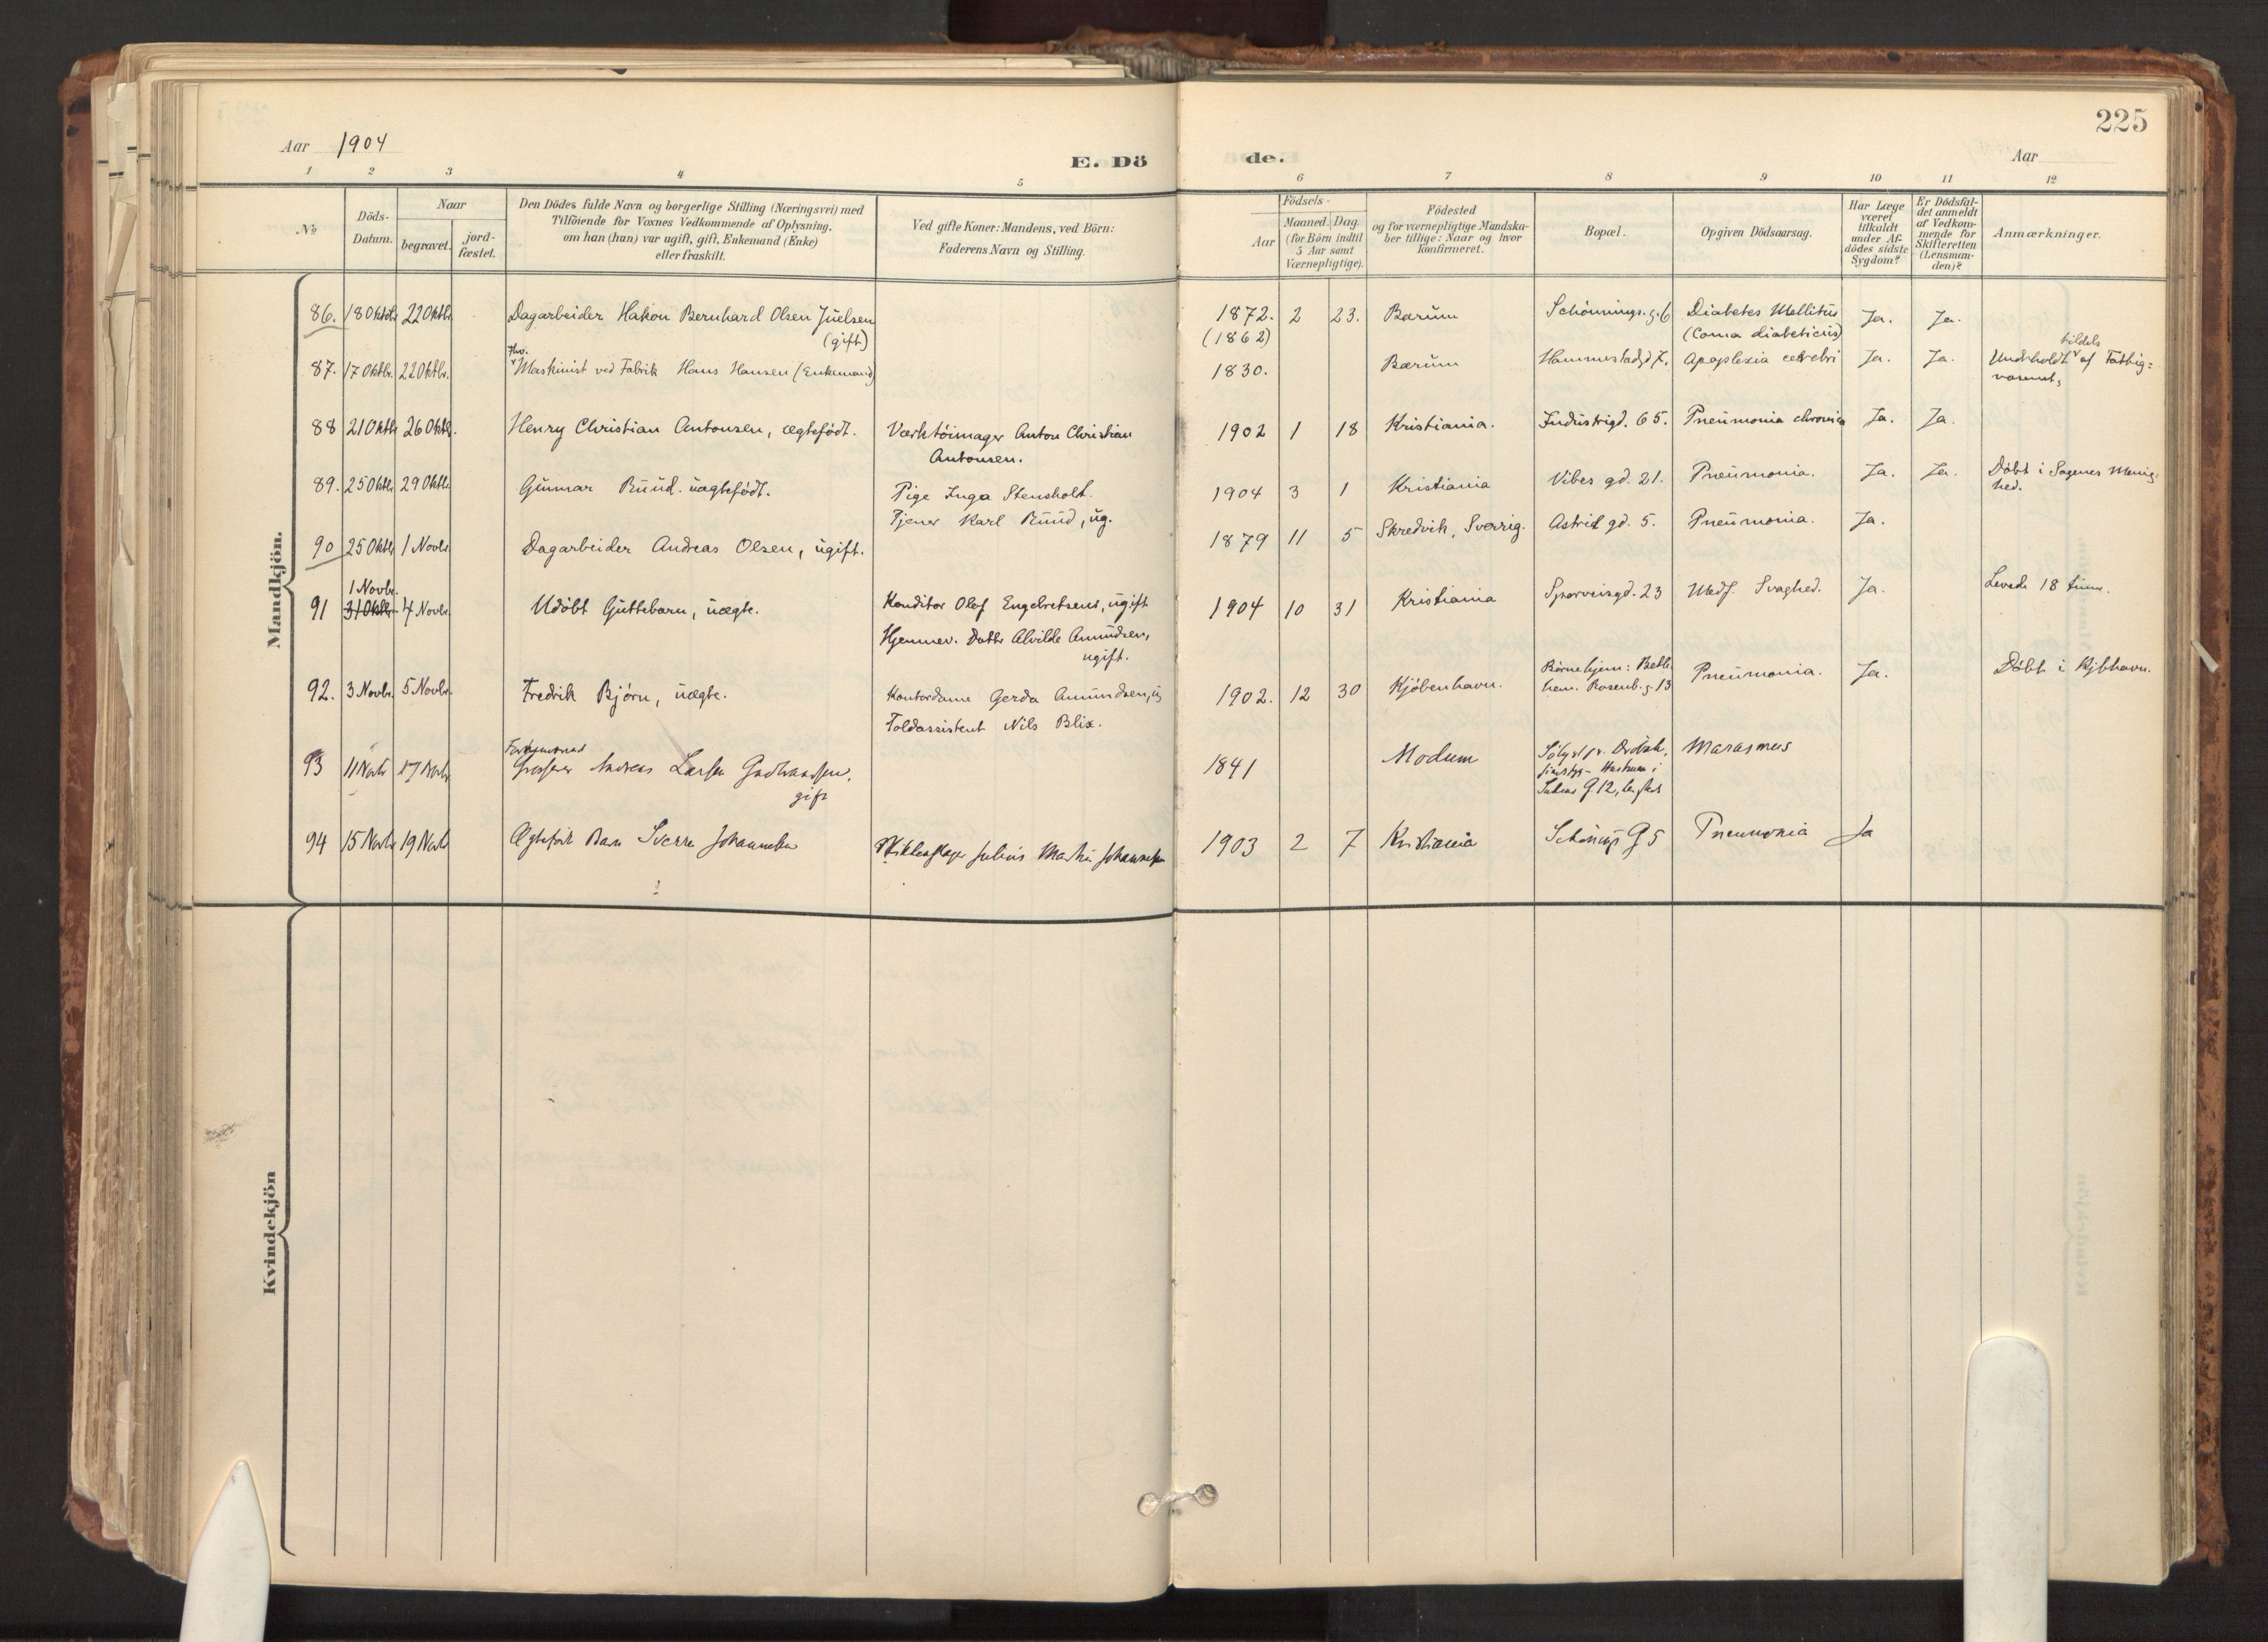 225
Aar 1904
E. Dö de.
Aar
1 2 3 4 5 6 7 8 9 10 11 12
No
Döds-
Datum.
Naar
begravet.
jord-
fæstet.
Den Dödes fulde Navn og borgerlige Stilling (Næringsvei) med
Tilföiende for Voxnes Vedkommende af Oplysning,
om han (hun) var ugift, gift, Enkemand (Enke)
eller fraskilt.
Ved gifte Koner: Mandens, ved Börn:
Faderens Navn og Stilling.
Födsels-
Aar
Maaned.
Dag
(for Börn indtil
5 Aar samt
Værnepligtige).
Födested
og for værnepligtige Mandska-
ber tillige: Naar og hvor
konfirmeret.
Bopæl.
Opgiven Dödsaarsag.
Har Læge
været
tilkaldt
under Af-
dödes sidste
Sygdom?
Er Dödsfal-
det anmeldt
af Vedkom-
mende for
Skifteretten
(Lensman-
den)?
Anmærkninger.
Mandkjön.
86. 18 Oktbr. 22 Oktbr. Dagarbeider Hakon Bernhard Olsen Juelsen 1872. 2 23. Bærum Schönnings. g. 6 Diabetes Mellitus Ja. Ja.
(gift) (1862) (Coma diabeticus)
87. 17 Oktbr. 22 Oktbr. Maskinist ved Fabrik Hans Hansen (Enkemand) 1830. Bærum Apoplexia cerebri Ja. Ja. Underholdt tildels af Fattig-
væsenet,
88 21 Oktbr 26 Oktbr. Henry Christian Antonsen, ægtefödt. Værktöimager Anton Christian 1902 1 18 Kristiania. Industrigd. 65. Pneumonia chronica Ja. Ja.
Antonsen.
89. 25 Oktbr 29 Oktbr. Gunnar Ruud. uægtefödt. Pige Inga Stensholt. 1904 3 1 Kristiania Vibes gd. 21. Pneumonia. Ja. Ja. Döbt i Sagenes Menig-
hed.
Tjener Karl Ruud, ug.
90 25 Oktbr 1 Novbr Dagarbeider Andreas Olsen, ugift. 1879 11 5 Skredvik, Sverrig. Astrid gd. 5. Pneumonia. Ja.
1 Novbr.
91 31 Oktbr 4 Novbr. Udöbt Guttebarn, uægte. Konditor Olaf Engebretsens, ugift 1904 10 31 Kristiania Sporveisgd. 23 Medf. Svaghed. Ja. Levede 18 timer.
Hjemmev. Datter Alvilde Amundsen,
ugift.
92. 3 Novbr. 5 Novbr. Fredrik Björn, uægte. Kontordame Gerda Amundsen, ug 1902. 12 30 Kjöbenhavn. Börnehjem: Betle-
hem. Rosenb. g. 13 Pneumonia. Ja. Döbt i Kjbhavn.
Toldassistent Nils Blix.
93 11 Novbr 17 Novbr Grosserer Andreas Larsen 1841 Modum Marasmus
gift
94 15 Novbr 19 Novbr Ægtefödt Barn Sverre Johannesen Julius Martin Johannesen 1903 2 7 Kristiania Schönings G 5 Pneumonia Ja
Kvindekjön